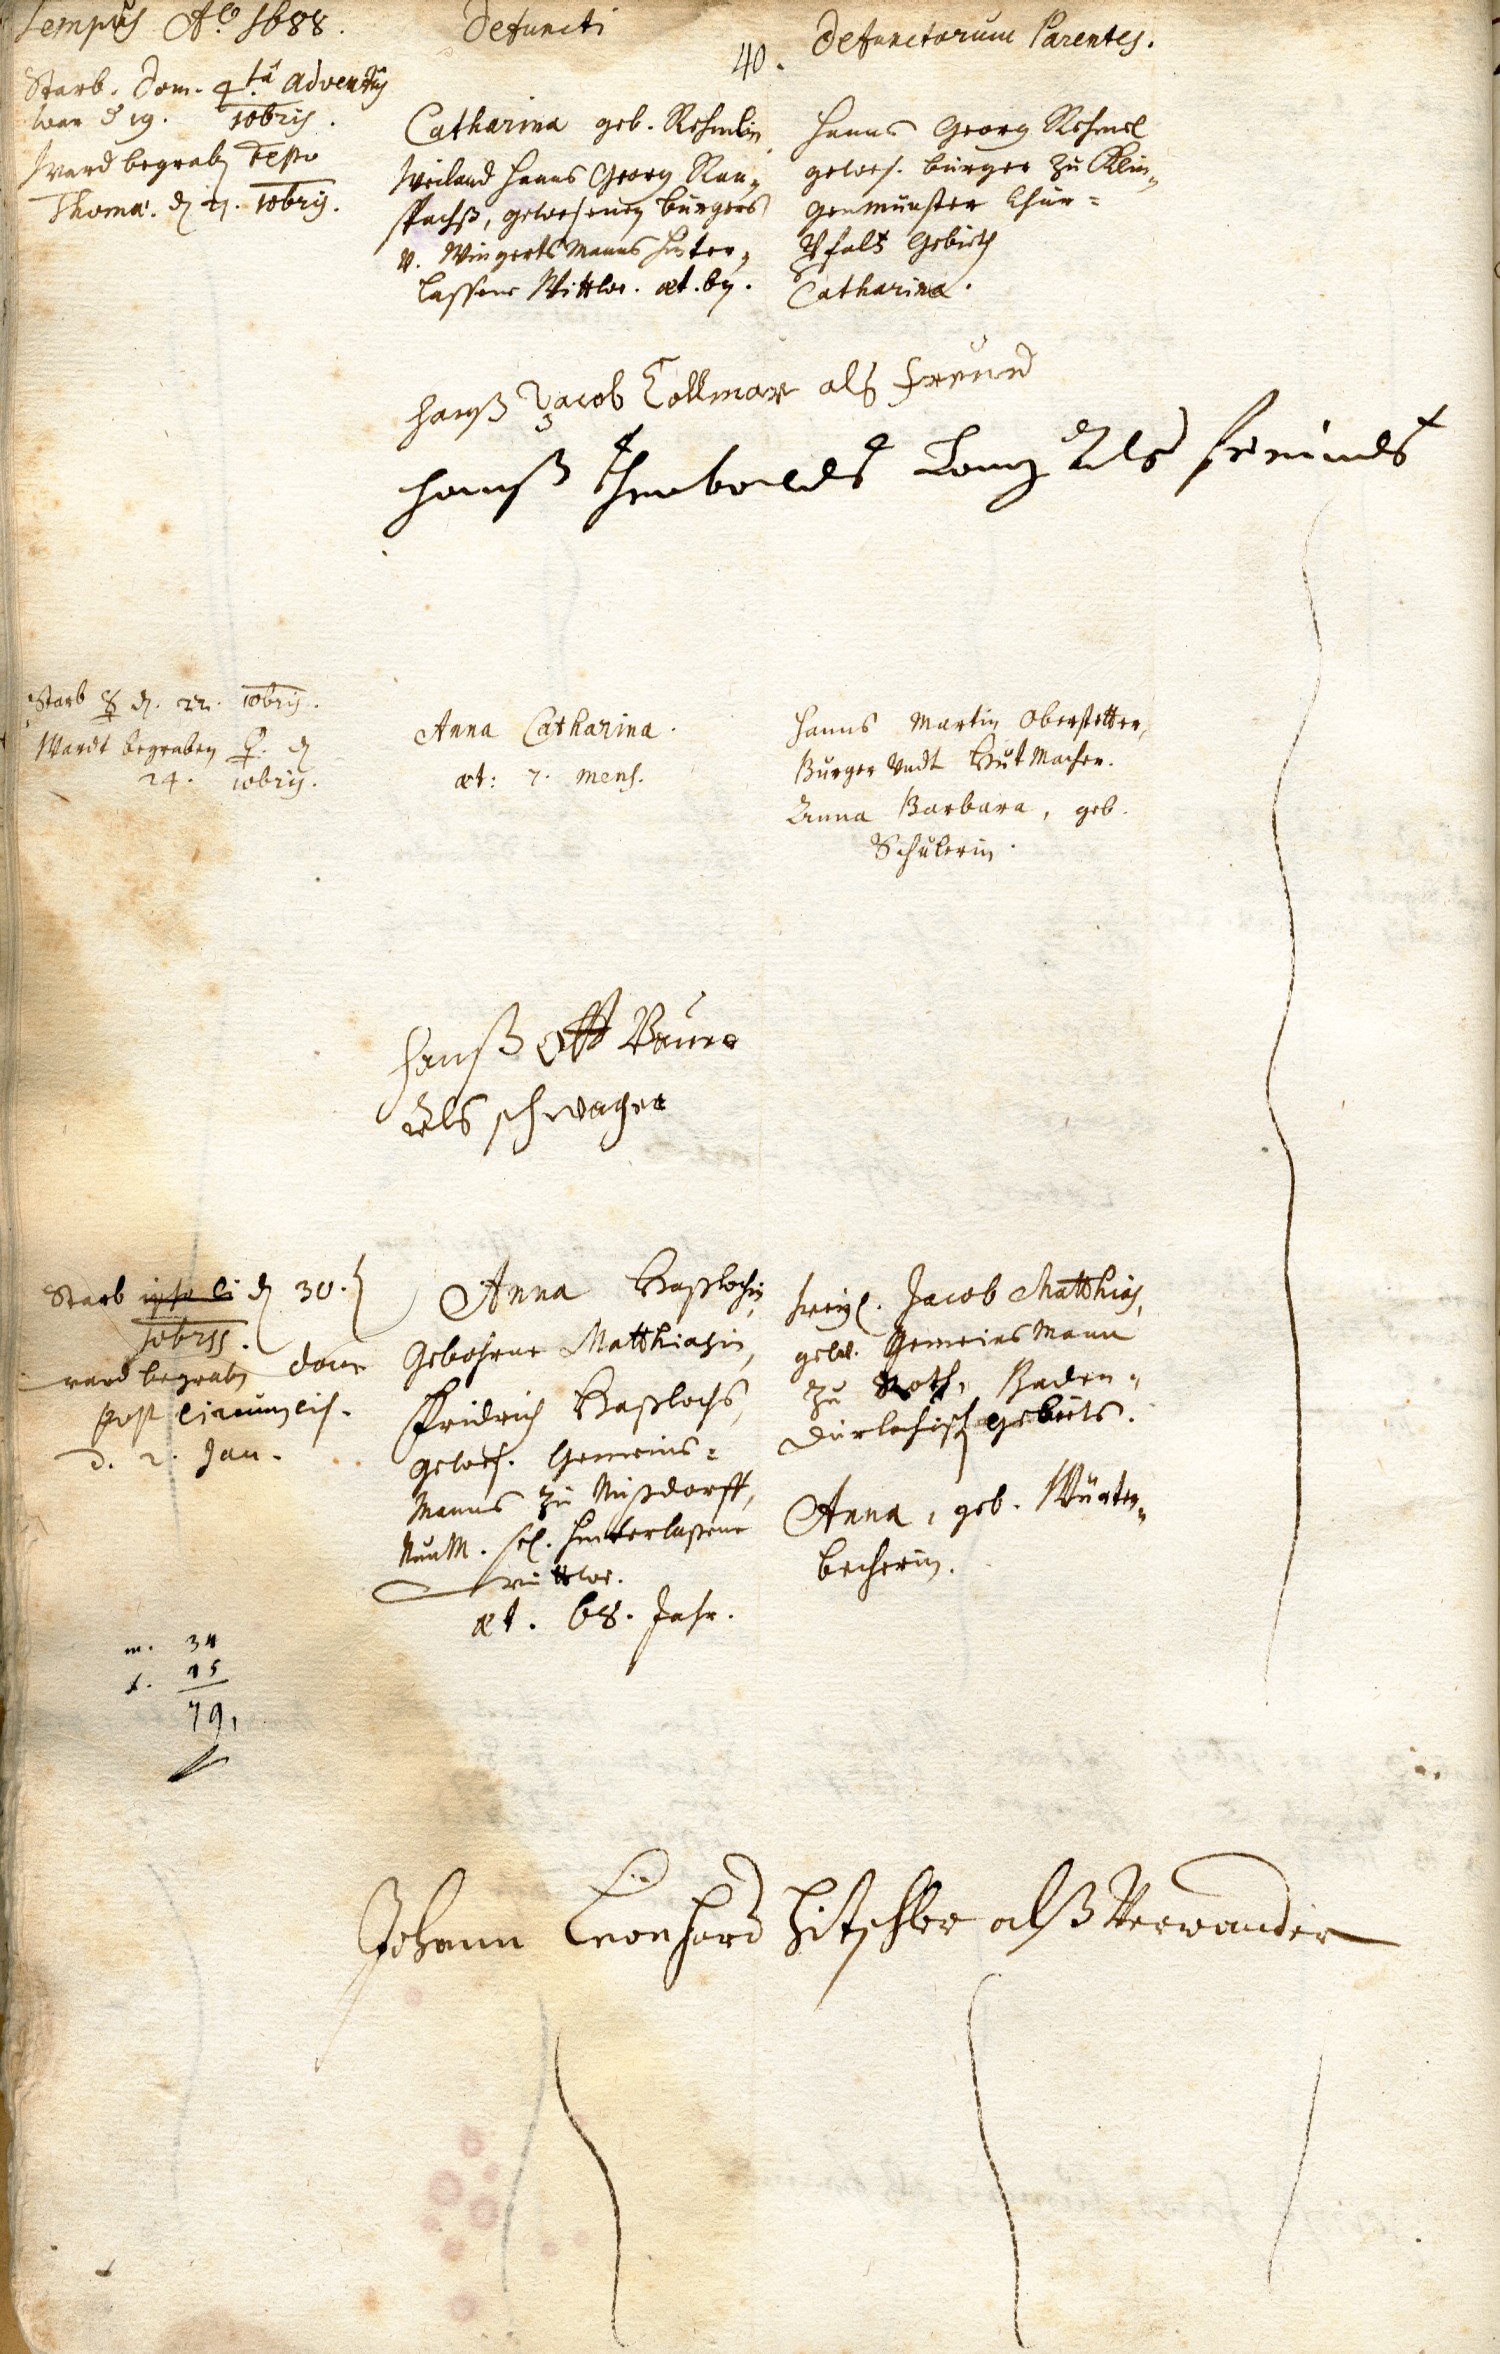 Tempus Ao. 1688.
Defuncti
40.
Defunctorum Parentes.
Starb. Dom. 4ta Adventus
war d 19. 10bris.
Ward begrabn Festo
Thomae. dn 21. 10bris.
Catharina geb. Rehmlin,
Weiland Hanns Georg Ran-
spachß, gewesenen burgers
v. Wingerts Manns hinter-
lassene Wittwe. æt. 69.
Hanns Georg Rehmel
gewes. burger zu Klin-
genmünster Chur-
Pfaltz Gebieth
Catharina.
Hanß Jacob Collmar als freund
Hanß Theobaldt Lang Als freindt
Starb ☿ dn. 22. 10bris.
Wardt begraben ♀. dn
24. 10bris.
Anna Catharina.
æt: 7. mens.
Hanns Martin Oberstetter,
Burger Vndt Hut Macher.
Anna Barbara, geb.
Schülerin.
Hanß Ott Baur
Als schwager
Starb dn 30.
10bris.
ward begrabn domc
post circumcis.
d. 2. Jan.
Anna Haßlochin,
Gebohrne Matthiasin,
Fridrich Haßlochs,
gewes. Gemeins-
Manns zu Nußdorff,
Nunm. sel. hinterlaßene
wittwe.
æt. 68. Jahr.
Jacob Matthias,
gewes. Gemeins Mann
zu Roth, Baden-
Durlachisch gebiets.
Anna, geb. Würten-
becherin.
m. 34
f. 45
79,
Johann Leonhard Hitschler alß Verwander